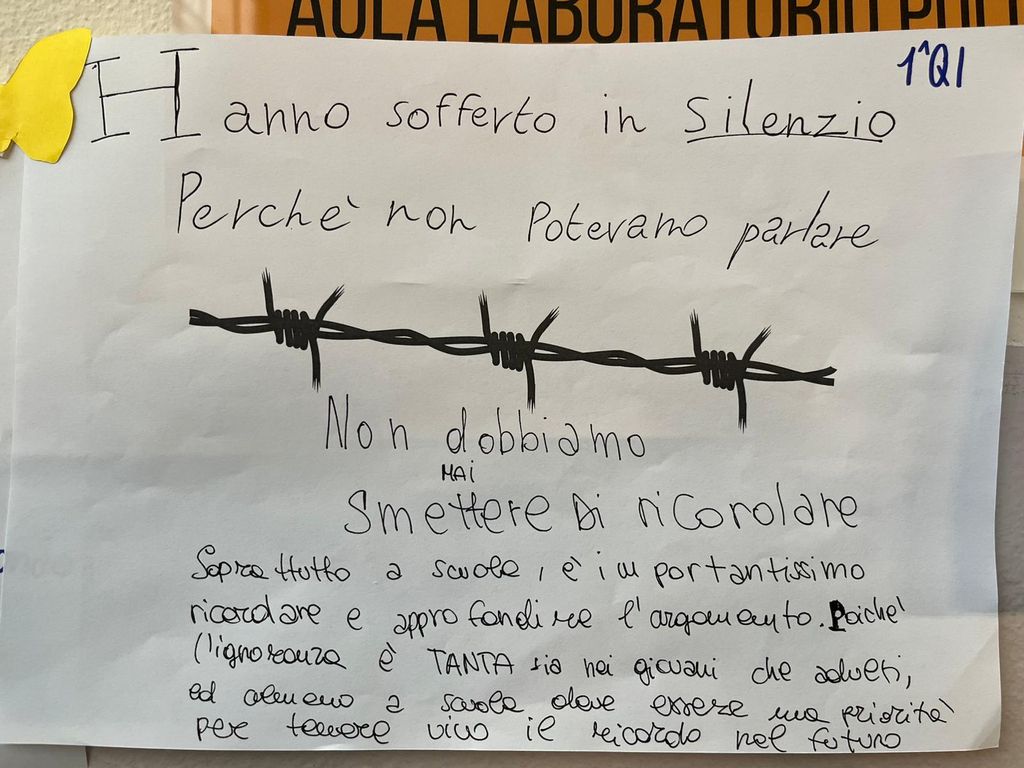 AULA LABORATORIO POLI
1^QI
Hanno sofferto in Silenzio
Perchè non Potevano parlare
Non dobbiamo
MAI
Smettere Di ricordare
Soprattutto a scuola, è importantissimo
ricordare e approfondire l'argomento. Poiche'
l'ignoranza è TANTA sia nei giovani che adulti,
ed almeno a scuola deve essere una priorità
per tenere vivo il ricordo nel futuro